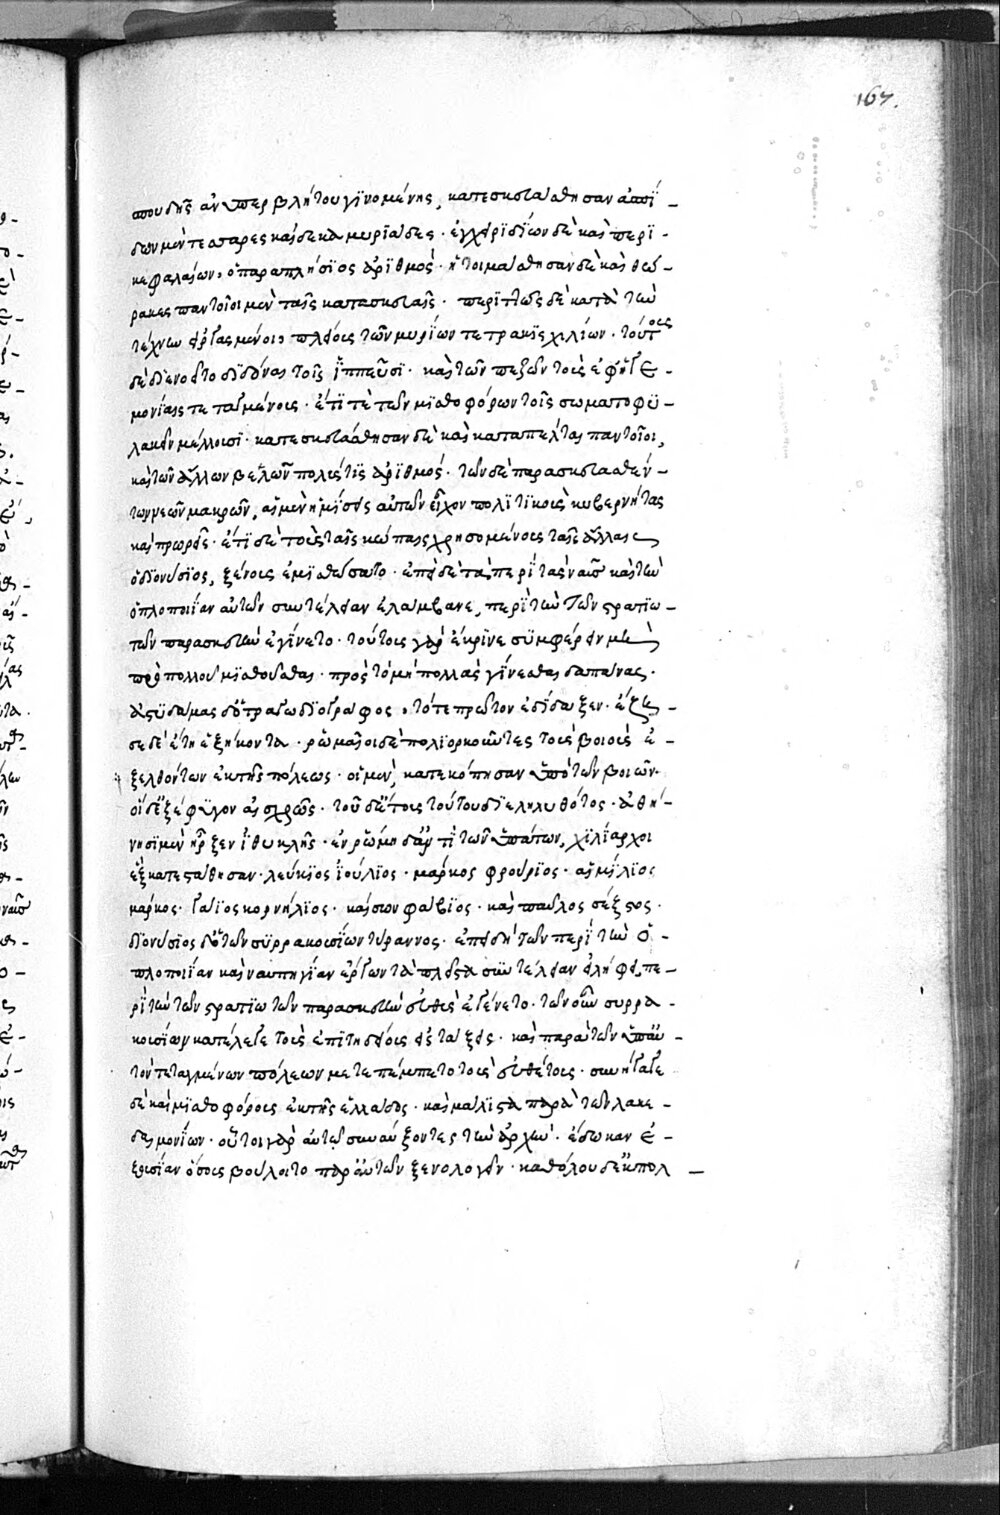 σπουδῆς ἀνυπερβλήτου γϊνομένης, κατεσκευάσθησαν ἀσπΐ-
δων μὲν τέσσαρες καὶ δέκα μυριάδες· ἐγχειρϊδίων δὲ καὶ περϊ-
κεφαλαίων, ὁ παραπλήσϊος ἀρϊθμός· ἡτοιμάσθησαν δὲ καὶ θώ-
ρακες παντοῖοι μὲν ταῖς κατασκευαῖς· περϊττῶς δὲ κατὰ τὴν
τέχνην εἰργασμένοι, πλείοις τῶν μυρίων τετρακϊσχιλίων· τούτους
δὲ διενοεῖτο δϊδόναι τοῖς ἱππεῦσϊ· καὶ τῶν πεζῶν τοῖς ἐφ' ἡγε-
μονίαις τεταγμένοις· ἔτϊ τὲ τῶν μϊσθοφόρων τοῖς σωματοφϋ-
λακεῖν μέλλουσϊ· κατεσκευάσθησαν δὲ καὶ καταπέλται παντοῖοι,
καὶ τῶν ἄλλων βελῶν πολύς τϊς ἀρϊθμός· τῶν δὲ παρασκευασθέν-
των νεῶν μακρῶν, αἱ μὲν ἡμίσεις αὐτῶν εἶχον πολϊτϊκοὺς κυβερνήτας
καὶ πρωρεῖς· ἔτϊ δὲ τοὺς ταῖς κώπαις χρησομένους ταῖς ἄλλαις
ὁ δϊονύσϊος, ξένοις ἐμϊσθώσατο· ἐπεὶ δὲ τὰ περὶ τὰς ναῦς καὶ τὴν
ὁπλοποιΐαν αὐτῶν συντέλειαν ἐλάμβανε, περὶ τὴν τῶν στρατϊω-
τῶν παρασκευὴν ἐγίνετο· τούτοις γὰρ ἔκρϊνε σϋμφέρειν μὴ
πρὸ πολλοῦ μϊσθοῦσθαι· πρὸς τὸ μὴ πολλὰς γίνεσθαι δαπάνας·
ἀστϋδάμας δ' ὁ τραγωδϊογράφος, τότε πρῶτον ἐδίδαξεν· ἔζη-
σε δὲ ἔτη ἑξήκοντα· ῥωμαῖοι δὲ πολϊορκοῦντες τοὺς βοιοὺς ἐ-
ξελθόντων ἐκ τῆς πόλεως· οἱ μὲν, κατεκόπησαν ὑπὸ τῶν βοιῶν·
οἱ δ' ἐξέφϋγον αἰσχρῶς· τοῦ δ' ἔτοις τούτου δϊεληλυθότος· ἀθή-
νησϊ μὲν ἦρξεν ἰθυκλῆς· ἐν ῥώμη δ' ἀντὶ τῶν ὑπάτων, χϊλίαρχοι
ἓξ κατεστάθησαν· λεύκϊος ἰούλϊος· μάρκος φρούρϊος· αἰμίλϊος
μάρκος· γάϊος κορνήλϊος· καίσων φάβϊος· καὶ παῦλος σέξτος·
δϊονύσϊος δ' ὁ τῶν σϋρρακοισίων τύραννος· ἐπειδὴ τῶν περὶ τὴν ὁ-
πλοποιΐαν καὶ ναυπηγίαν ἔργων τὰ πλεῖστα συντέλειαν εἰλήφει, πε-
ρὶ τὴν τῶν στρατϊωτῶν παρασκευὴν εὐθὺς ἐγένετο· τῶν οὖν συρρα-
κοισίων κατέλεγε τοὺς ἐπϊτηδείοις εἰς τάξεις· καὶ παρὰ τῶν ὑπ' αὐ-
τὸν τεταγμένων πόλεων μετεπέμπετο τοὺς εὐθέτοις· συνήγαγε
δὲ καὶ μϊσθοφόροις ἐκ τῆς ἑλλάδος· καὶ μάλϊστα παρὰ τῶν λακε-
δαιμονίων· οὗτοι γὰρ αὐτῶ συναύξοντες τὴν ἀρχὴν· ἔδωκαν ἐ-
ξουσίαν ὅσοις βούλοιτο παρ' αὐτῶν ξενολογεῖν· καθόλου δ' ἐκ πολ-